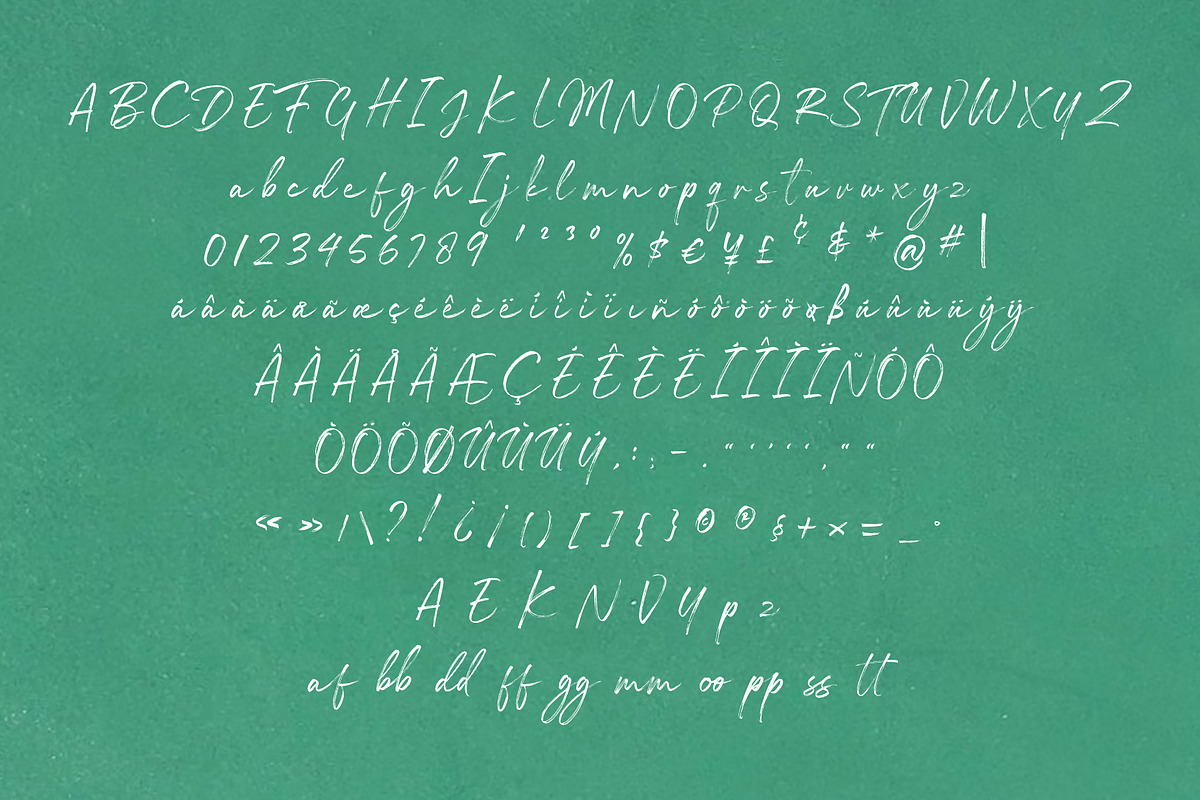 A B C D E F G H I J K L M N O P Q R S T U V W X Y Z
a b c d e f g h I j k l m n o p q r s t u v w x y z
0 1 2 3 4 5 6 7 8 9 ¹ ² ³ ⁰ % $ € ¥ £ ¢ & * @ # |
á â à ä å ã æ ç é ê è ë í î ì ï ı ñ ó ô ò ö õ ø ß ú û ù ü ý ÿ
Â À Ä Å Ã Æ Ç É Ê È Ë Í Î Ì Ï Ñ Ó Ô
Ò Ö Õ Ø Û Ù Ü Ý , : ; - . “ ‘ ’ ‘ ‘ , “ “
« » / \ ? ! ¿ ¡ ( ) [ ] { } © ® § + × = _ °
A E K N V Y p z
af bb dd ff gg mm oo pp ss tt